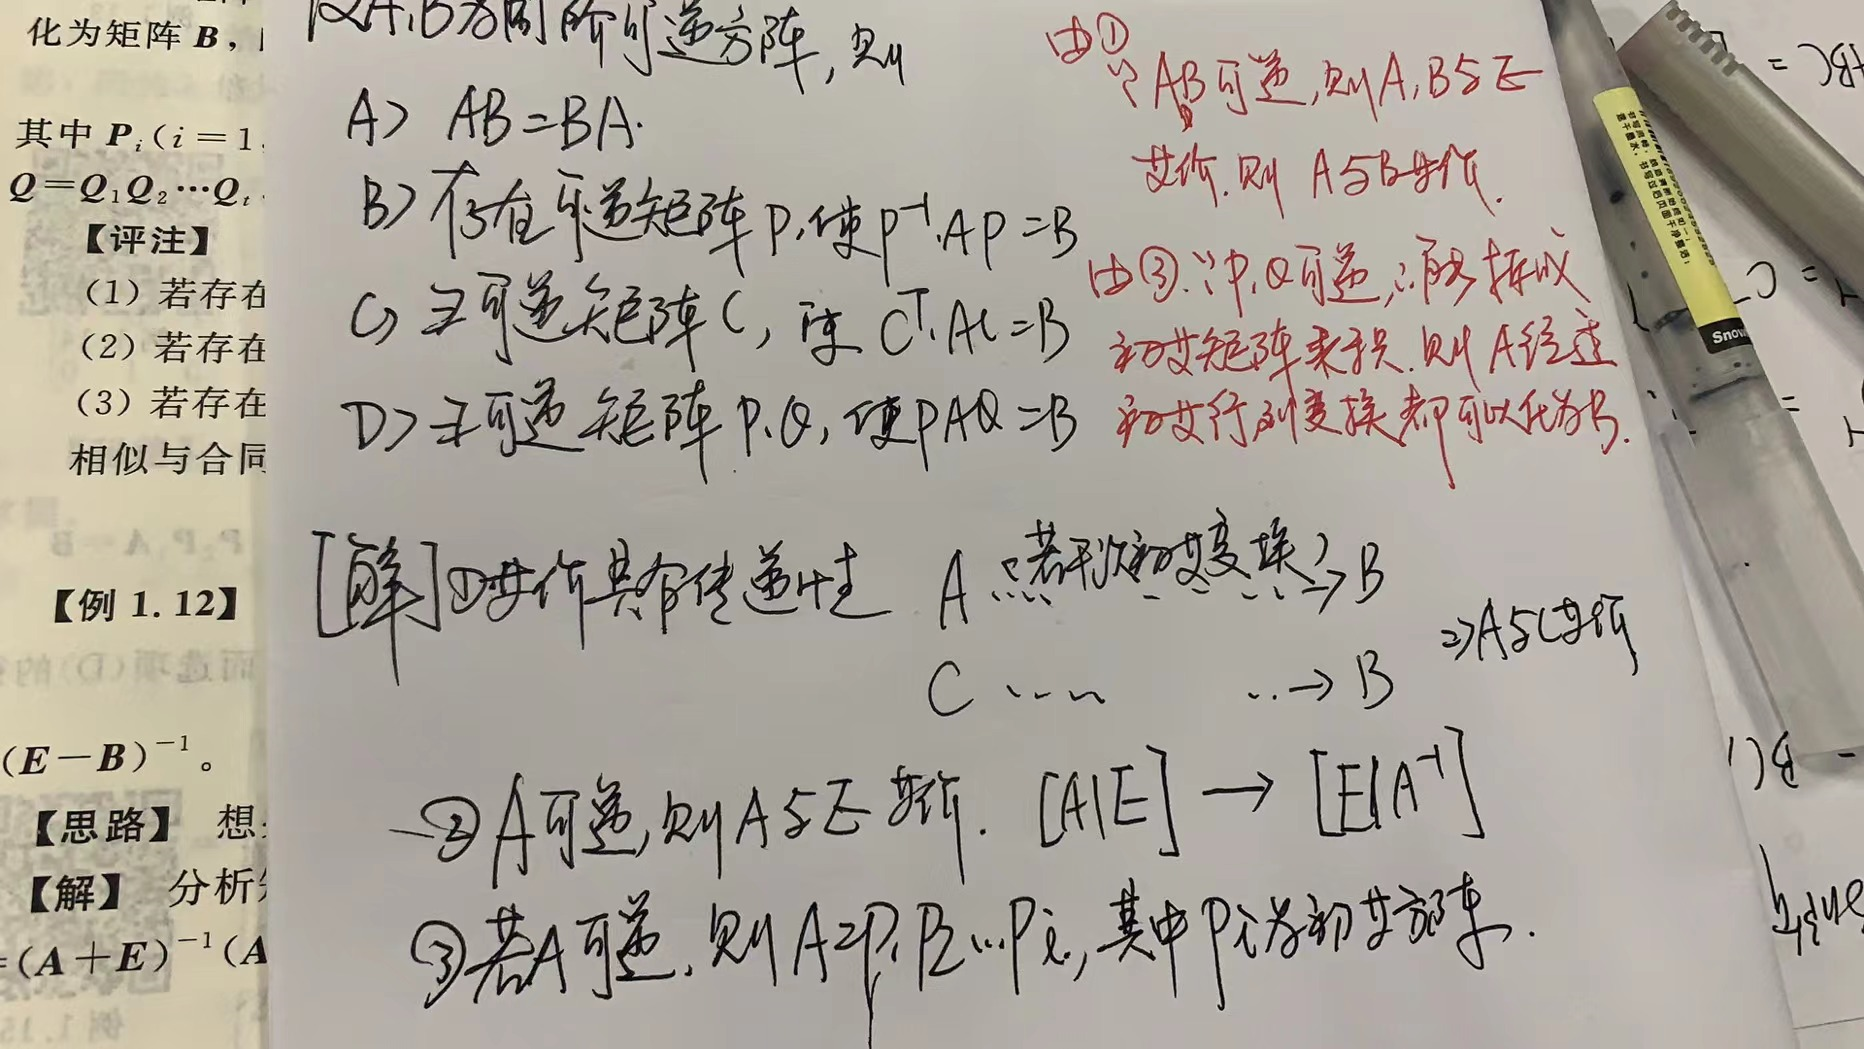 化为矩阵 B，
其中 Pᵢ(i=1,
Q=Q₁Q₂⋯Qₜ
【评注】
（1）若存在
（2）若存在
（3）若存在
相似与合同
【例 1.12】
(E－B)⁻¹。
【思路】 想
【解】 分析
=(A+E)⁻¹(A
设A,B为同阶可逆方阵,则
A> AB=BA.
B> 存在可逆矩阵P,使P⁻¹·AP=B
C> ∃可逆矩阵C,使 Cᵀ·AC=B
D> ∃可逆矩阵P.Q,使PAQ=B
由①
∵AB可逆,则A,B与E
等价.则A与B等价.
由③.∵P,Q可逆,∴可拆成
初等矩阵乘积.则A经过
初等行列变换都可以化为B.
[解]①等价具有传递性 A ⋯若干次初等变换⋯→B
C ⋯ ⋯→B ⇒A与C等价
②A可逆,则A与E等价. [A|E]→[E|A⁻¹]
③若A可逆.则A=P₁P₂⋯Pᵢ,其中Pᵢ为初等方阵.
Snow